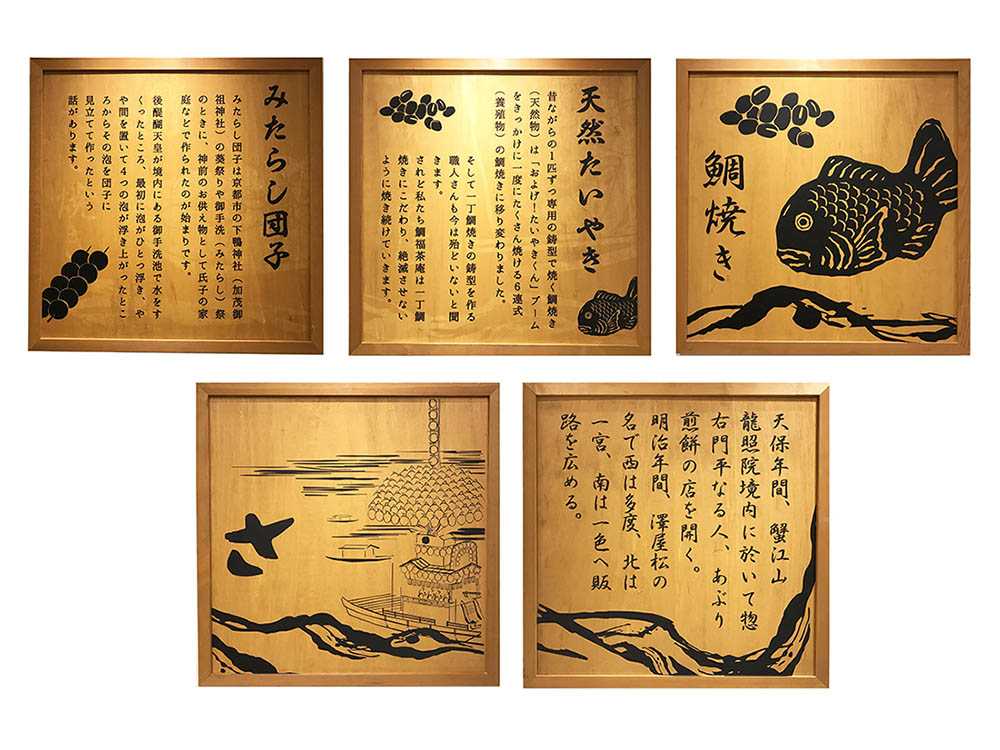 みたらし団子
みたらし団子は京都市の下鴨神社（加茂御
祖神社）の葵祭りや御手洗（みたらし）祭
のときに、神前のお供え物として氏子の家
庭などで作られたのが始まりです。
後醍醐天皇が境内にある御手洗池で水をす
くったところ、最初に泡がひとつ浮き、や
や間を置いて４つの泡が浮き上がったとこ
ろからその泡を団子に
見立てて作ったという
話があります。
天然たいやき
昔ながらの１匹ずつ専用の鋳型で焼く鯛焼き
（天然物）は「およげ！たいやきくん」ブーム
をきっかけに一度にたくさん焼ける６連式
（養殖物）の鯛焼きに移り変わりました。
そして一丁鯛焼きの鋳型を作る
職人さんも今は殆どいないと聞
きます。
されど私たち鯛福茶庵は一丁鯛
焼きにこだわり、絶滅させない
ように焼き続けていきます。
鯛焼き
天保年間、蟹江山
龍照院境内に於いて惣
右門平なる人、あぶり
煎餅の店を開く。
明治年間、澤屋松の
名で西は多度、北は
一宮、南は一色へ販
路を広める。